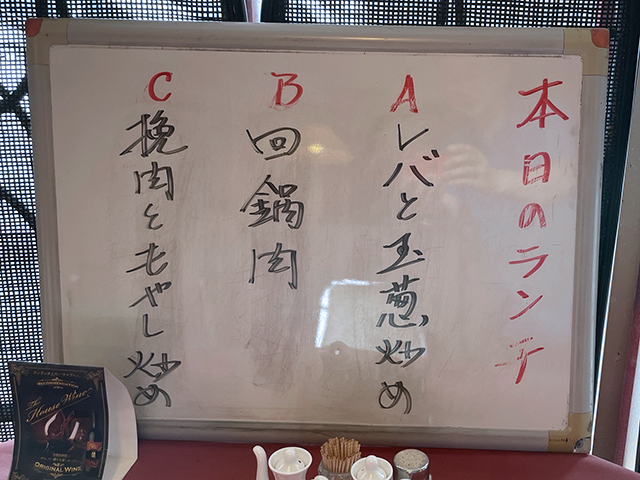 本日のランチ
A レバと玉葱炒め
B 回鍋肉
C 挽肉ともやし炒め
The
House Wine
ORIGINAL WINE